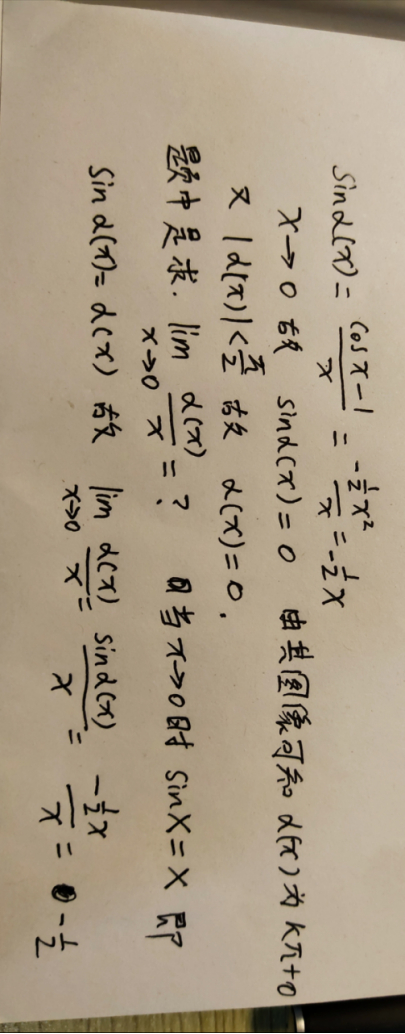 sinα(x) = \frac{cosx-1}{x} = \frac{-\frac{1}{2}x²}{x} = -\frac{1}{2}x
x→0 故 sinα(x)=0 由其图像可知 α(x)为kπ+0
又 |α(x)|<\frac{π}{2} 故 α(x)=0.
题中是求. lim_{x→0} \frac{α(x)}{x} = ? 当x→0时 sinx=x 即
sinα(x)=α(x) 故 lim_{x→0} \frac{α(x)}{x} = \frac{sinα(x)}{x} = \frac{-\frac{1}{2}x}{x} = -\frac{1}{2}